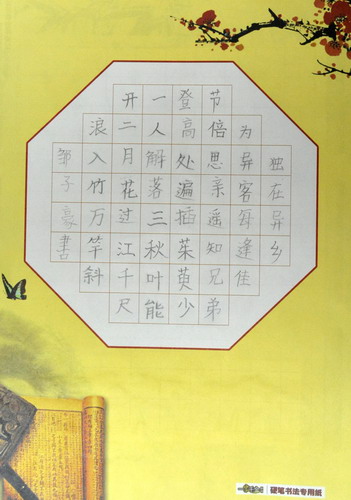 独在异乡
为异客每逢佳
节倍思亲遥知兄弟
登高处遍插茱萸少
一人解落三秋叶能
开二月花过江千尺
浪入竹万竿斜
邹子豪書
硬笔书法专用纸